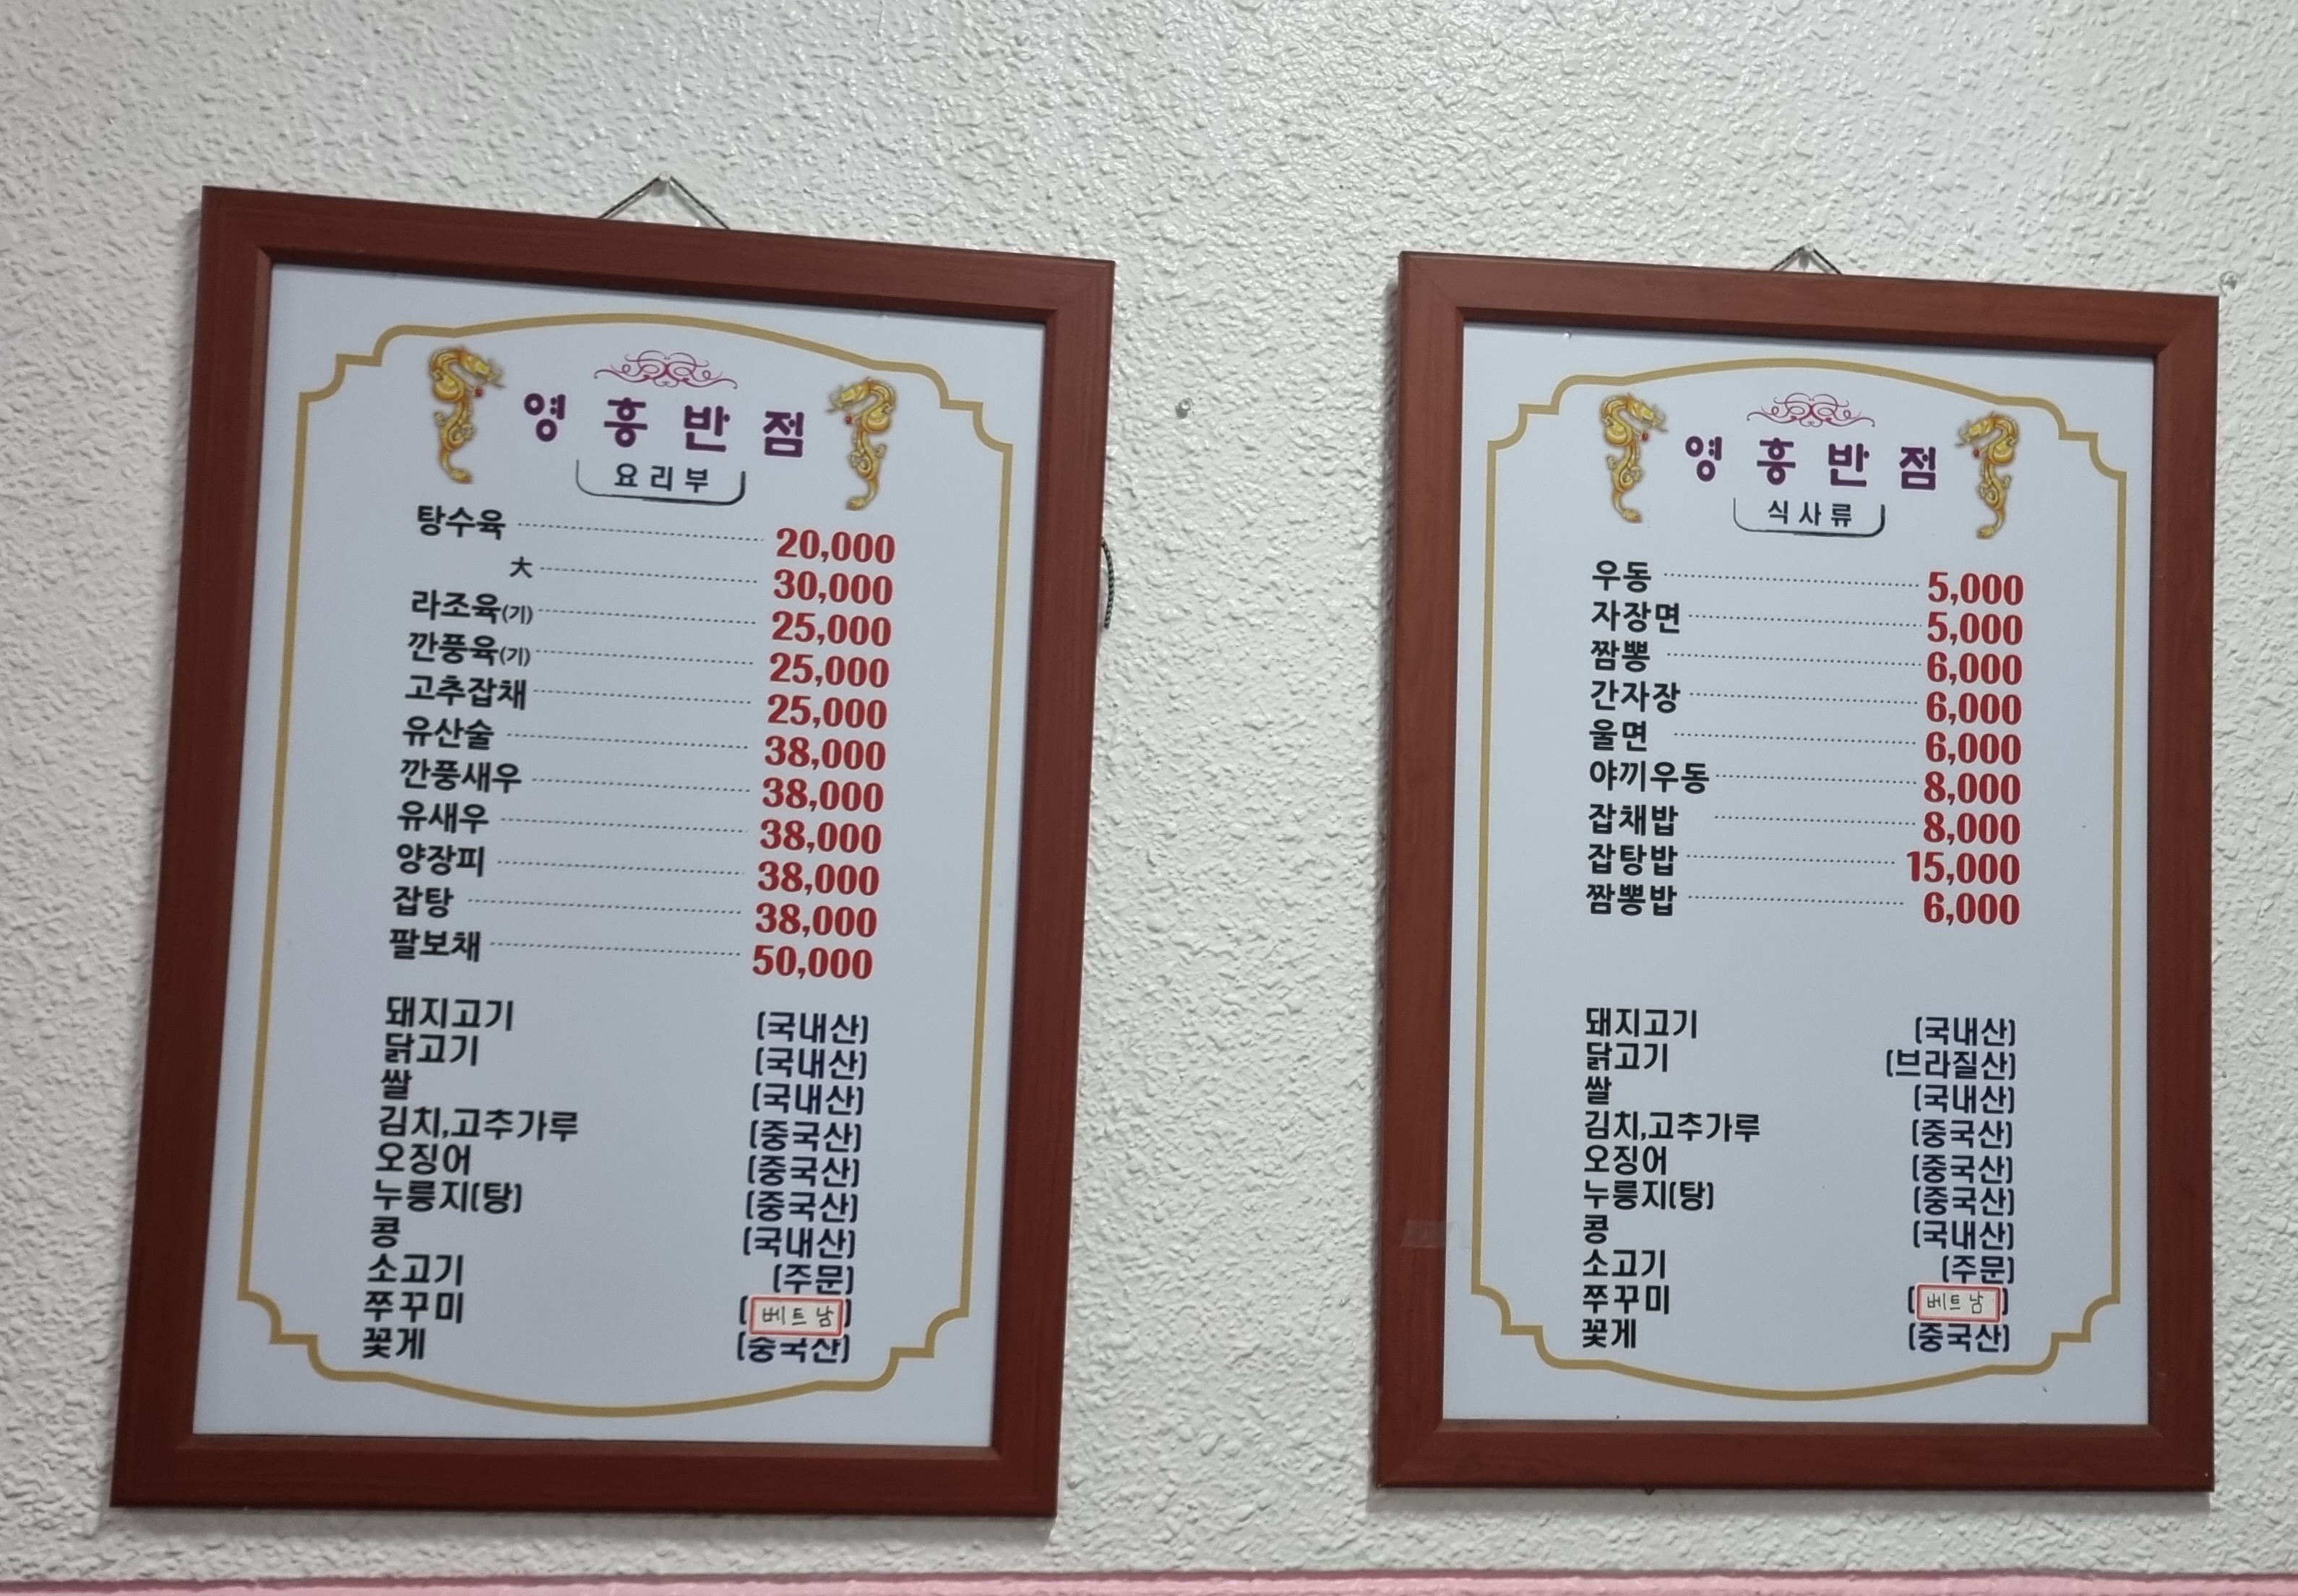 영흥반점
요리부
탕수육 20,000
大 30,000
라조육(기) 25,000
깐풍육(기) 25,000
고추잡채 25,000
유산슬 38,000
깐풍새우 38,000
유새우 38,000
양장피 38,000
잡탕 38,000
팔보채 50,000
돼지고기 (국내산)
닭고기 (국내산)
쌀 (국내산)
김치,고추가루 (중국산)
오징어 (중국산)
누룽지(탕) (중국산)
콩 (국내산)
소고기 (주문)
쭈꾸미 (베트남)
꽃게 (중국산)
영흥반점
식사류
우동 5,000
자장면 5,000
짬뽕 6,000
간자장 6,000
울면 6,000
야끼우동 8,000
잡채밥 8,000
잡탕밥 15,000
짬뽕밥 6,000
돼지고기 (국내산)
닭고기 (브라질산)
쌀 (국내산)
김치,고추가루 (중국산)
오징어 (중국산)
누룽지(탕) (중국산)
콩 (국내산)
소고기 (주문)
쭈꾸미 (베트남)
꽃게 (중국산)